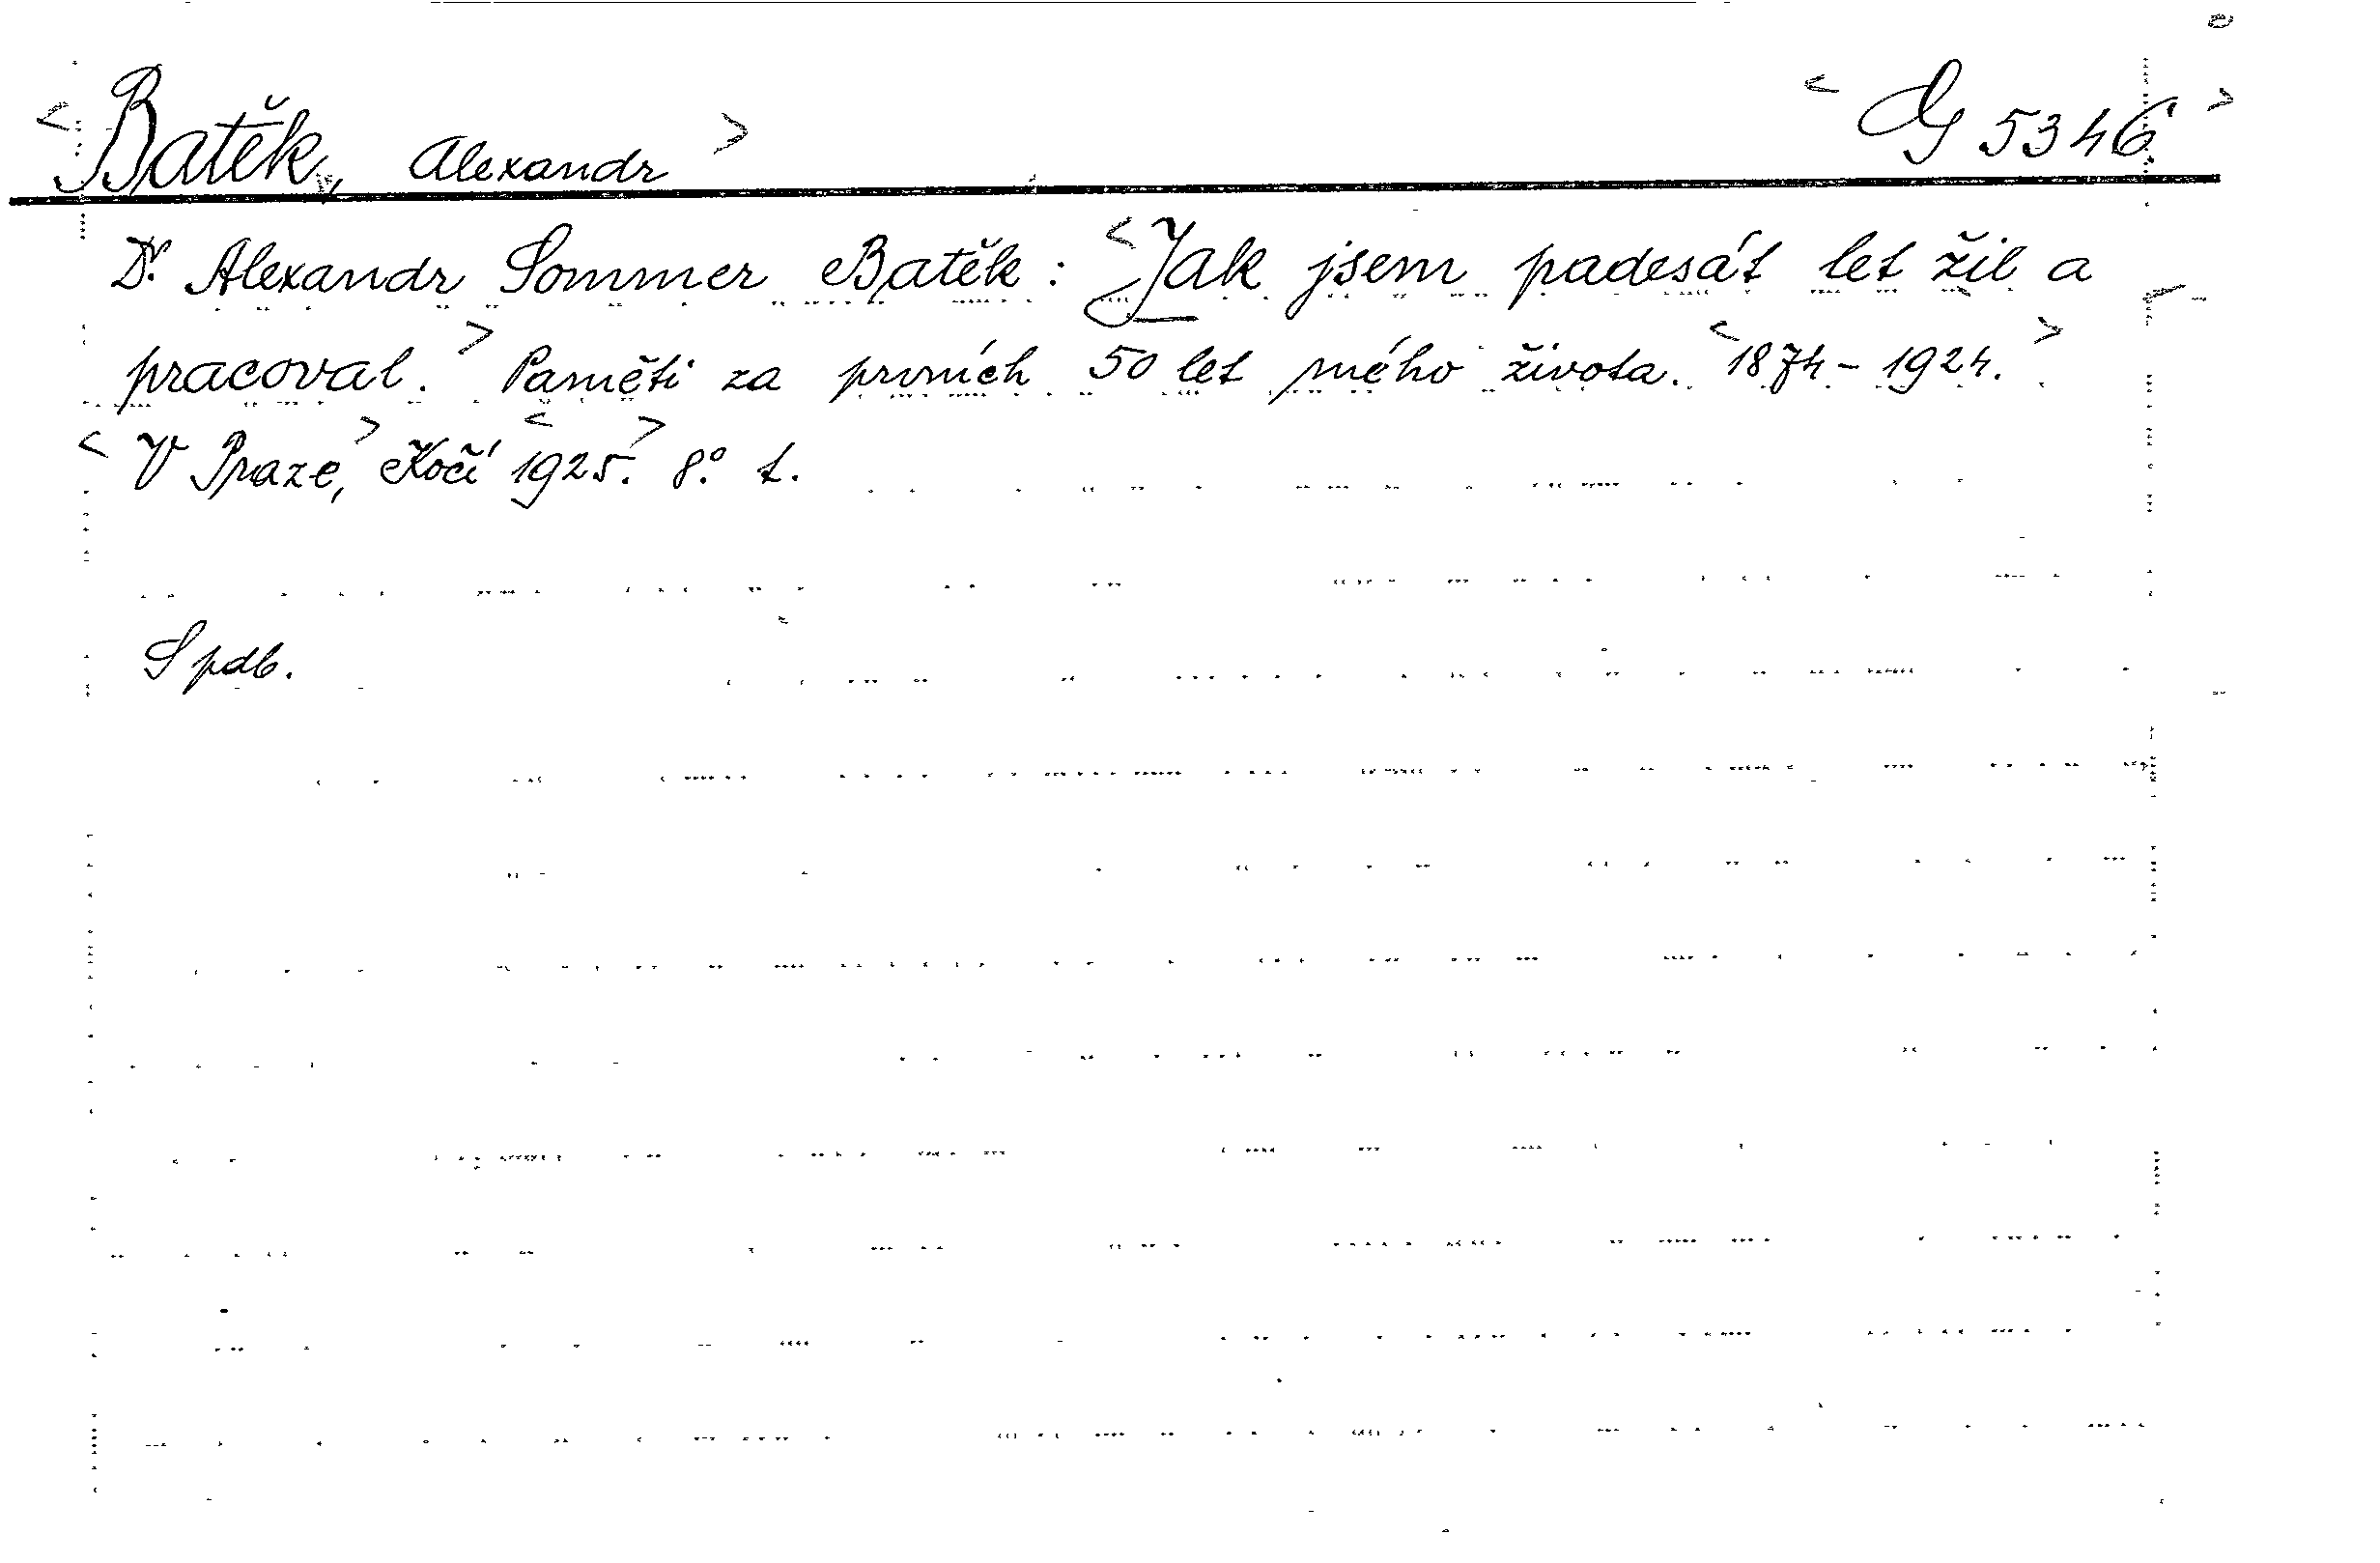 <Batěk, Alexandr> <G 5346.>
Dr. Alexandr Sommer Batěk: <Jak jsem padesát let žil a
pracoval.> Paměti za prvních 50 let mého života. <1874-1924.>
<V Praze,> Kočí <1925.> 8° t.
S pdb.